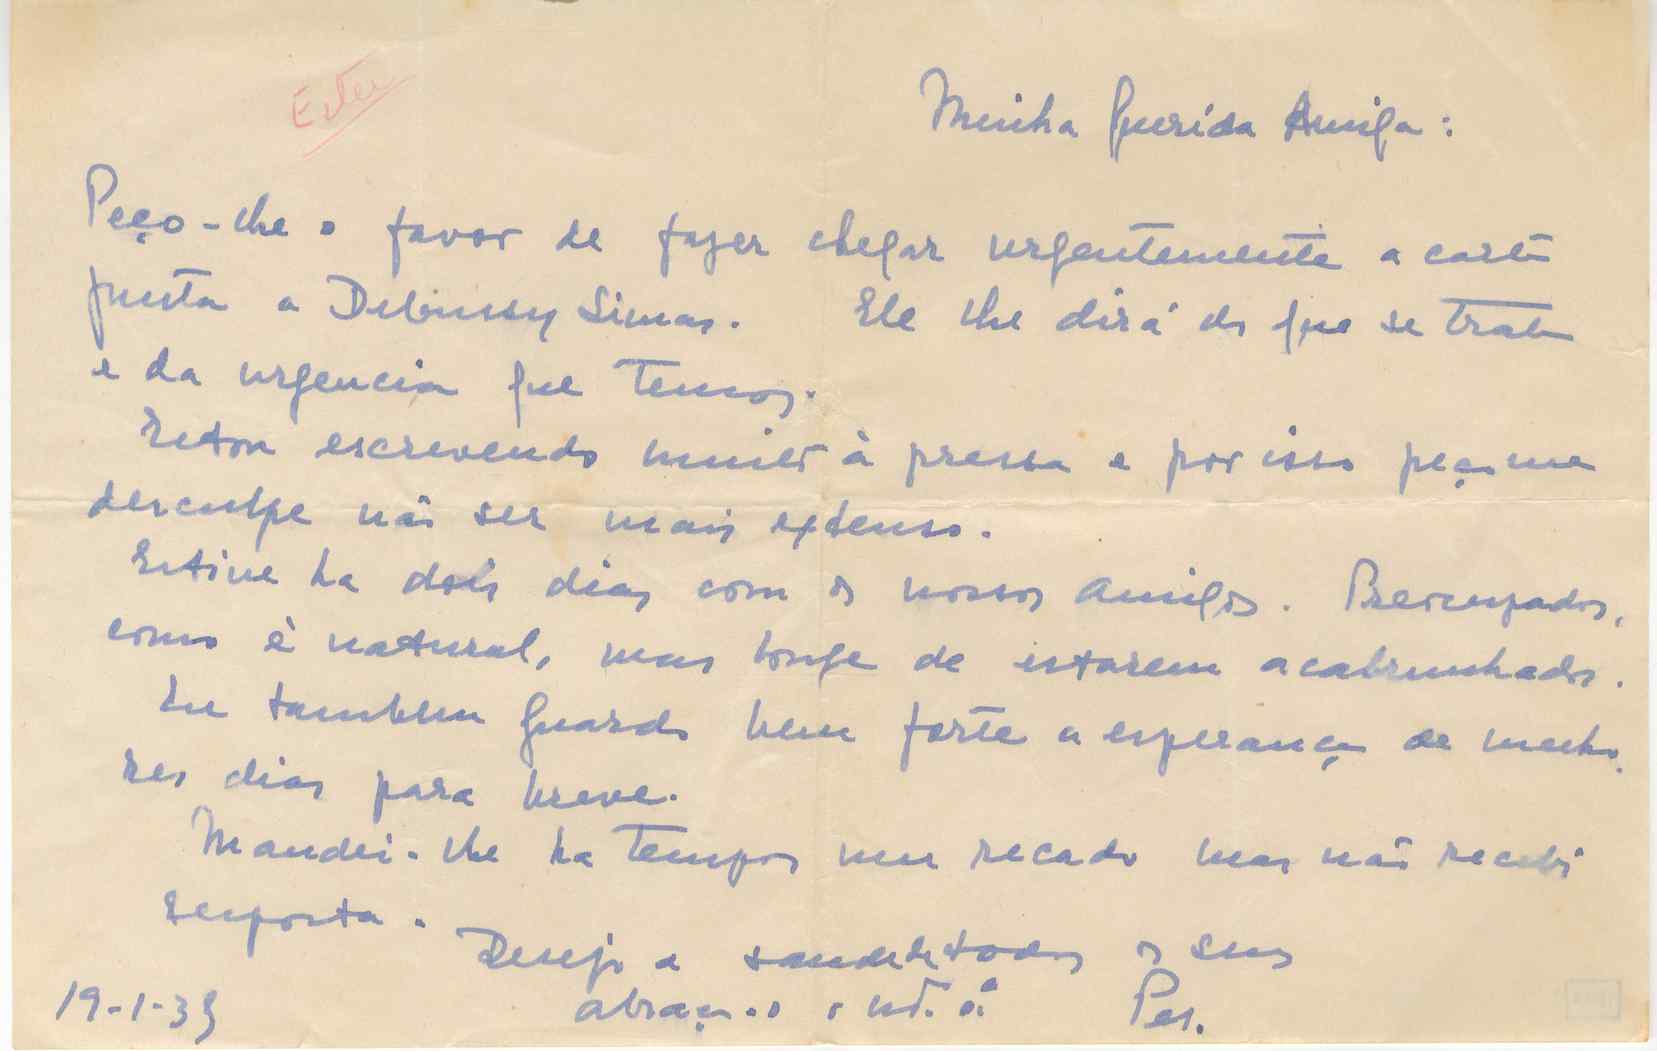 Ester
Minha Querida Amiga:
Peço-lhe o favor de fazer chegar urgentemente a carta
junta a Debussy Simas. Ele lhe dirá do que se trata
e da urgencia que temos.
Estou escrevendo muito à pressa e por isso peço me
desculpe não ser mais extenso.
Estive ha dois dias com os nossos amigos. Preocupados,
como é natural, mas longe de estarem acabrunhados.
Eu tambem guardo bem forte a esperança de melho
res dias para breve.
Mandei-lhe ha tempos um recado mas não recebi
resposta.
Desejo a saude de todos os seus
abraça-o o
19-1-33